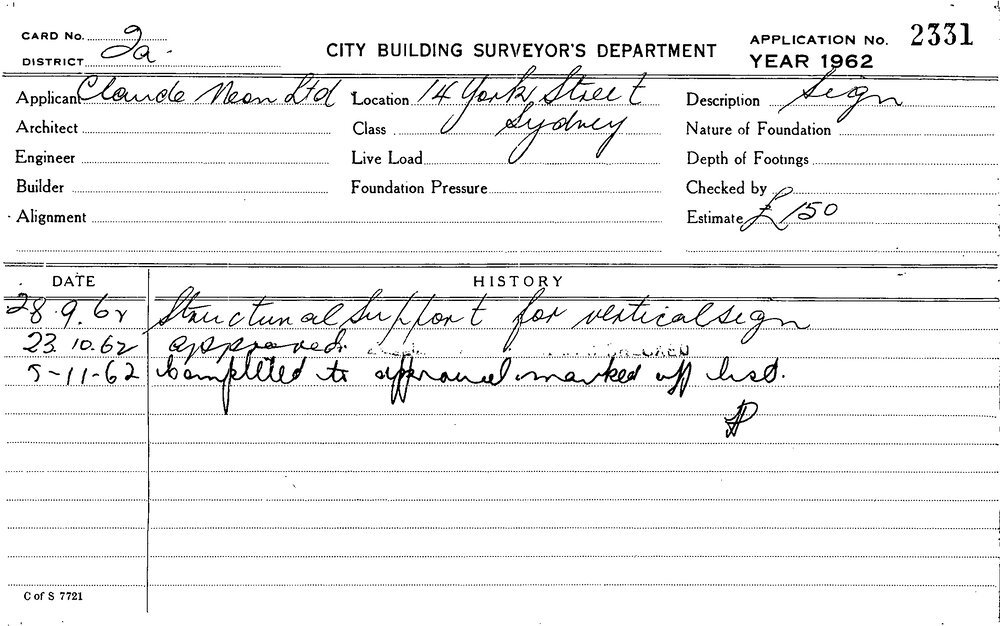 CARD No.
DISTRICT 2a.
CITY BUILDING SURVEYOR'S DEPARTMENT
APPLICATION No. 2331
YEAR 1962
Applicant Claude Neon Ltd Location 14 York Street Description Sign
Architect Class Sydney Nature of Foundation
Engineer Live Load Depth of Footings
Builder Foundation Pressure Checked by
Alignment Estimate £150
DATE HISTORY
28.9.62 Structural Support for vertical sign
23.10.62 approved.
5-11-62 Completed to approval marked off list.
C of S 7721